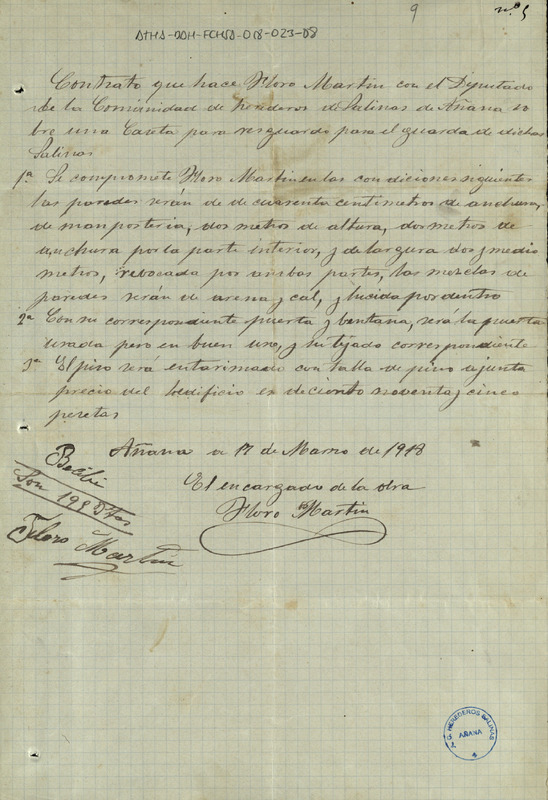 9
nº 5
ATHA-DAH-FCHSA-018-023-08
Contrato que hace Floro Martin con el Diputado
de la Comunidad de herederos de Salinas de Añana so
bre una Caseta para resguardo para el guarda de dichas
Salinas
1ª Se compromete Floro Martin en las condiciones siguientes
las paredes serán de de cuarenta centimetros de anchura,
de manposteria, dos metros de altura, dos metros de
anchura por la parte interior, y de largura dos y medio
metros, rebocada por ambas partes, las mezclas de
paredes serán de arena y cal, y lucida por dentro
2ª Con su correspondiente puerta y bentana, será la puerta
usada pero en buen uso, y su tejado correspondiente
3ª El piso será entarimado con talla de pino a junta
precio del edificio es de ciento noventa y cinco
pesetas
Añana a 17 de Marzo de 1918
El encargado de la obra
Floro Martin
Recibi
Son 195 Ptas
Floro Martin
HEREDEROS SALINAS
AÑANA